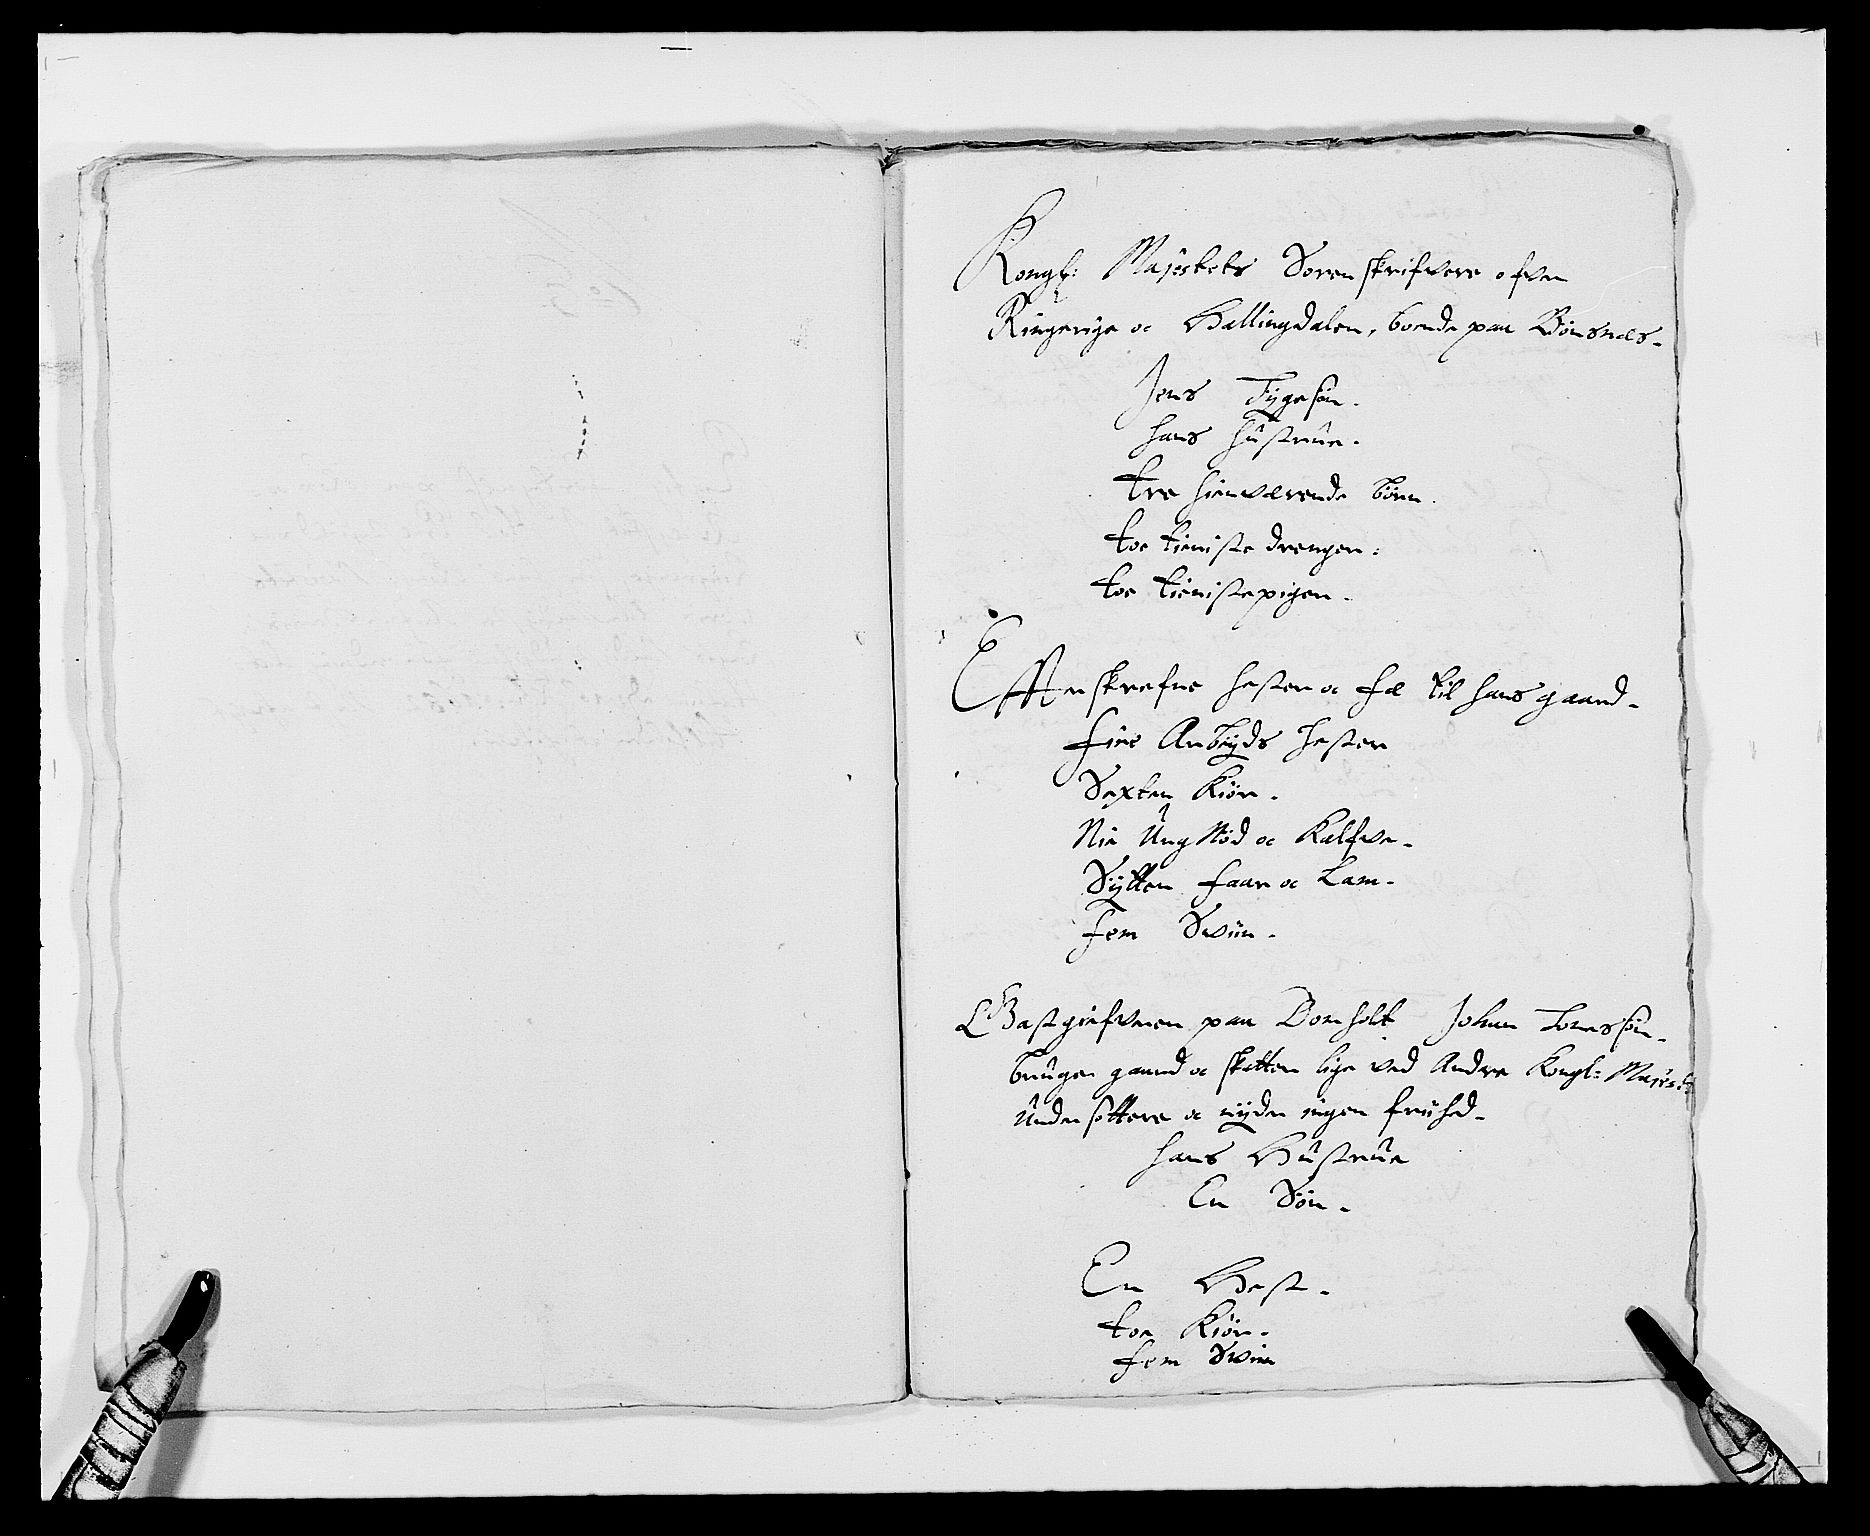 Kongl: Majestets Sorenskrifvere ofver
Ringerige oc Hallingdalen, boende paa Bønsnes-
Jens Tÿgesøn.
hans hustrue.
tre hiemværende børn.
toe tieniste drenger:
toe tienistepiger.
Effterskrefne hester oc fæ til hans gaard-
fire Arbÿds hester
Sexten Kiør.
Nie Ung Nød oc Kalfve-
Sÿtten faar oc Lam-
fem Sviin-
Gastgiefveren paa Bomholt Johan Torressøn-
bruger gaard oc skatter lige ved Andre Kongl: Majests
Undersottere oc nÿder ingen friihd-
hans Hustrue
En Søn-
En Hest-
toe Kiør-
fem Sviin